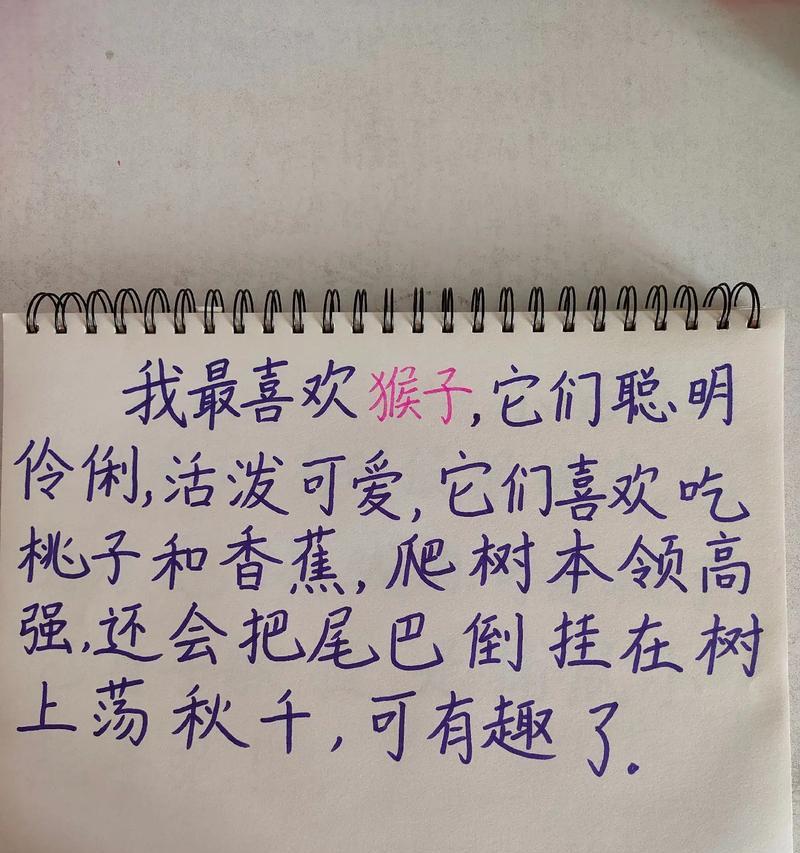 我最喜欢猴子,它们聪明
伶俐,活泼可爱,它们喜欢吃
桃子和香蕉,爬树本领高
强,还会把尾巴倒挂在树
上荡秋千,可有趣了.